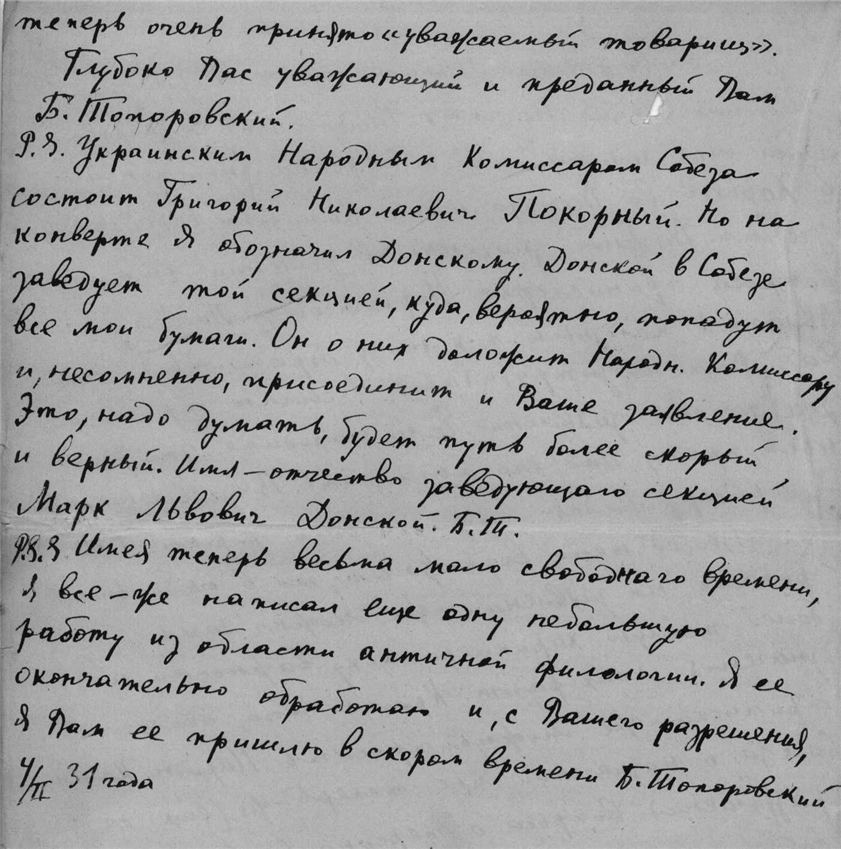 теперь очень принято «уважаемый товарищ».
Глубоко Вас уважающий и преданный Вам
Б. Топоровский.
P.S. Украинским Народным Комиссаром Собеза
состоит Григорий Николаевич Покорный. Но на
конверте я обозначил Донскому. Донской в Собезе
заведует той секцией, куда, вероятно, попадут
все мои бумаги. Он о них доложит Народн. Комиссару
и, несомненно, присоединит и Ваше заявление.
Это, надо думать, будет путь более скорый
и верный. Имя-отчество заведующаго секцией
Марк Львович Донской. Б.Т.
P.S.S Имея теперь весьма мало свободнаго времени,
я все-же написал еще одну небольшую
работу из области античной филологии. Я ее
окончательно обработаю и, с Вашего разрешения,
я Вам ее пришлю в скором времени Б. Топоровский
4/II 31 года